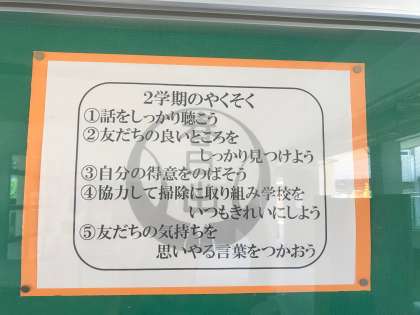 2学期のやくそく
①話をしっかり聴こう
②友だちの良いところを
しっかり見つけよう
③自分の得意をのばそう
④協力して掃除に取り組み学校を
いつもきれいにしよう
⑤友だちの気持ちを
思いやる言葉をつかおう